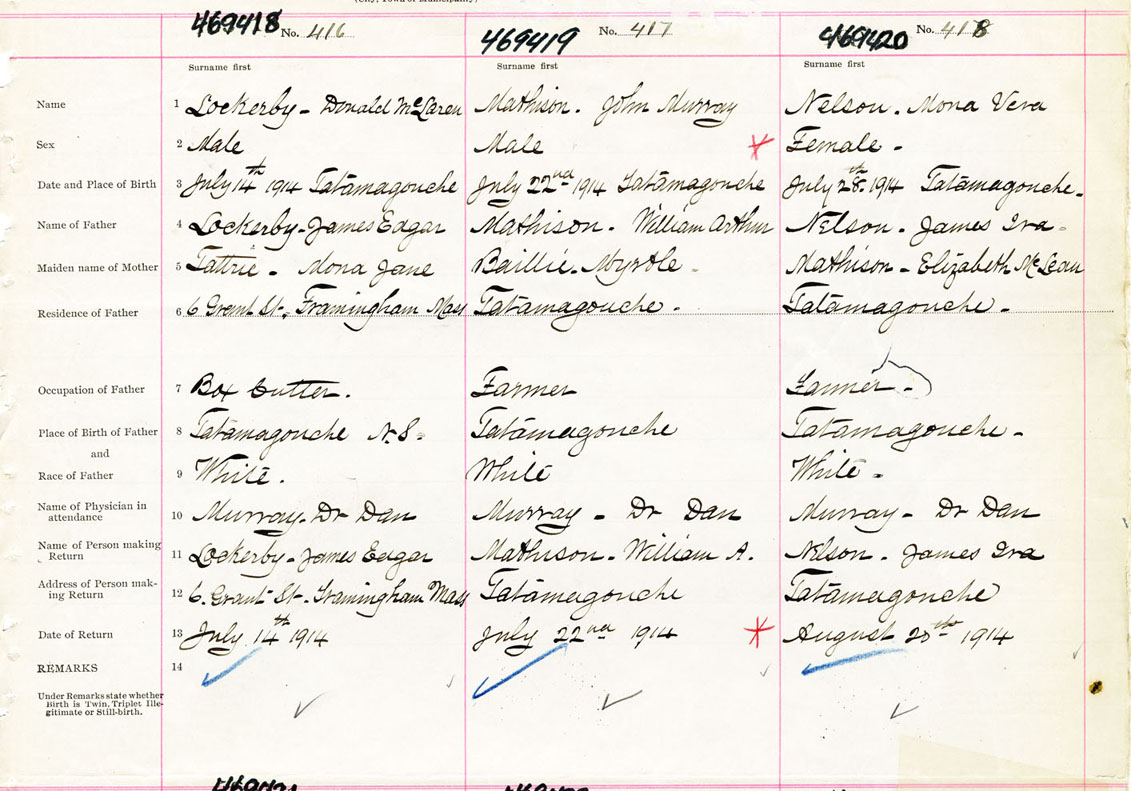 (City, Town or Municipality)
469418 No. 416 469419 No. 417 469420 No. 418
Surname first Surname first Surname first
Name 1 Lockerby - Donald McLaren Mathison. John Murray Nelson. Mona Vera
Sex 2 Male Male Female -
Date and Place of Birth 3 July 14th 1914 Tatamagouche July 22nd 1914 Tatamagouche July 28th 1914 Tatamagouche.
Name of Father 4 Lockerby - James Edgar Mathison. William Arthur Nelson. James Ira -
Maiden name of Mother 5 Tattrie - Mona Jane Baillie. Myrtle. Mathison - Elizabeth McLean
Residence of Father 6 6 Grant St., Framingham Mass Tatamagouche - Tatamagouche -
Occupation of Father 7 Box Cutter. Farmer Farmer -
Place of Birth of Father 8 Tatamagouche N.S. Tatamagouche Tatamagouche -
and
Race of Father 9 White. White White -
Name of Physician in
attendance 10 Murray - Dr Dan Murray - Dr Dan Murray - Dr Dan
Name of Person making
Return 11 Lockerby - James Edgar Mathison - William A. Nelson. James Ira
Address of Person mak-
ing Return 12 6. Grant St. Framingham Mass Tatamagouche Tatamagouche
Date of Return 13 July 14th 1914 July 22nd 1914 August 1914
REMARKS 14
Under Remarks state whether
Birth is Twin, Triplet Ille-
gitimate or Still-birth.